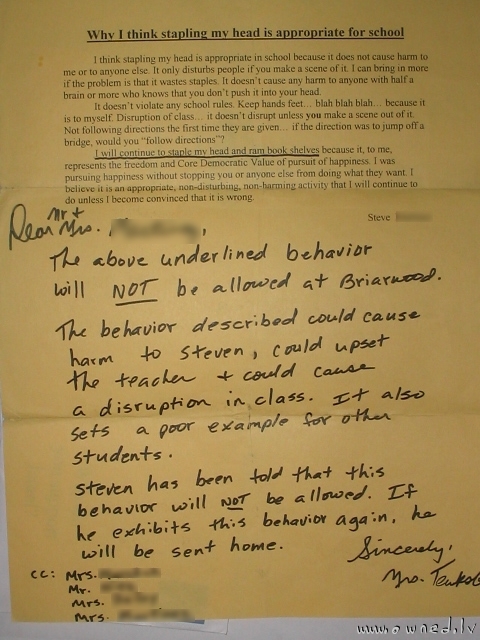 Why I think stapling my head is appropriate for school
I think stapling my head is appropriate in school because it does not cause harm to
me or to anyone else. It only disturbs people if you make a scene of it. I can bring in more
if the problem is that it wastes staples. It doesn't cause any harm to anyone with half a
brain or more who knows that you don't push it into your head.
It doesn't violate any school rules. Keep hands feet... blah blah blah... because it
is to myself. Disruption of class... it doesn't disrupt unless you make a scene out of it.
Not following directions the first time they are given... if the direction was to jump off a
bridge, would you "follow directions"?
I will continue to staple my head and ram book shelves because it, to me,
represents the freedom and Core Democratic Value of pursuit of happiness. I was
pursuing happiness without stopping you or anyone else from doing what they want. I
believe it is an appropriate, non-disturbing, non-harming activity that I will continue to
do unless I become convinced that it is wrong.
Steve
Mr +
Dear Mrs. ,
The above underlined behavior
will NOT be allowed at Briarwood.
The behavior described could cause
harm to Steven, could upset
the teacher + could cause
a disruption in class. It also
sets a poor example for other
students.
Steven has been told that this
behavior will NOT be allowed. If
he exhibits this behavior again, he
will be sent home.
Sincerely,
Mrs.
cc: Mrs.
Mr.
Mrs.
Mrs.
www.owned.lv